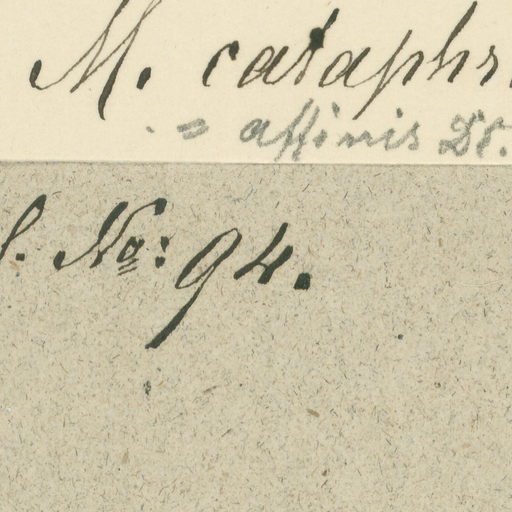 M. cataphr
= affinis
No: 94.